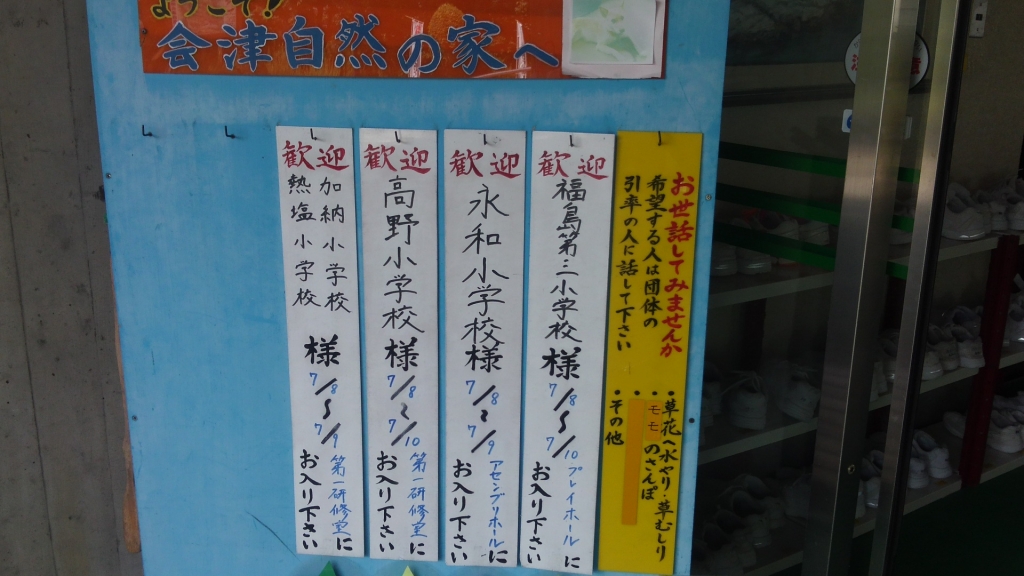 ようこそ!
会津自然の家へ
お世話してみませんか
希望する人は団体の
引率の人に話して下さい
・草花へ水やり・草むしり
・モモのさんぽ
・その他
歓迎
福島第三小学校
様
7/8~7/10
プレイホールに
お入り下さい
歓迎
永和小学校様
7/8~7/9
アセンブリホールに
お入り下さい
歓迎
高野小学校
様
7/8~7/10
第一研修室に
お入り下さい
歓迎
加納小学校
熱塩小学校
様
7/8~7/9
第一研修室に
お入り下さい